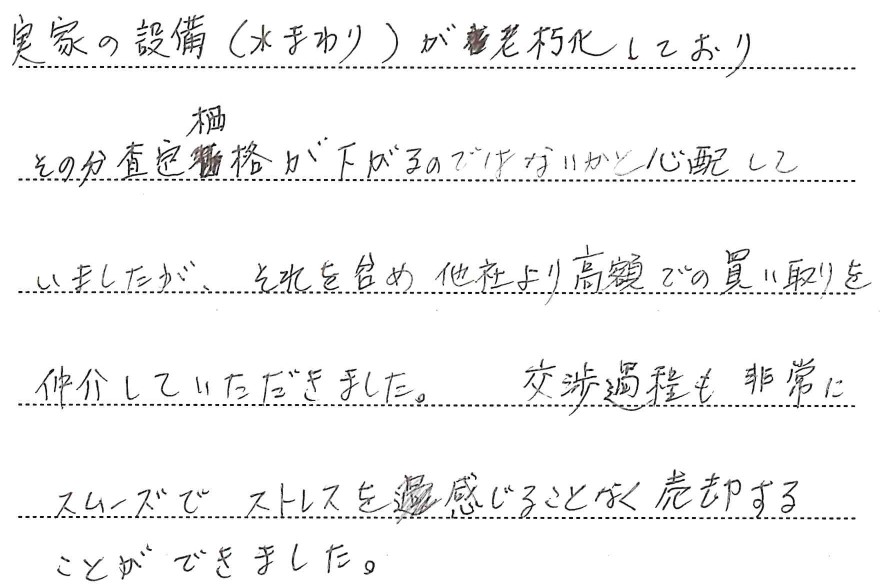 実家の設備(水まわり)が老朽化しており
その分査定価格が下がるのではないかと心配して
いましたが、それを含め他社より高額での買い取りを
仲介していただきました。 交渉過程も非常に
スムーズでストレスを感じることなく売却する
ことができました。